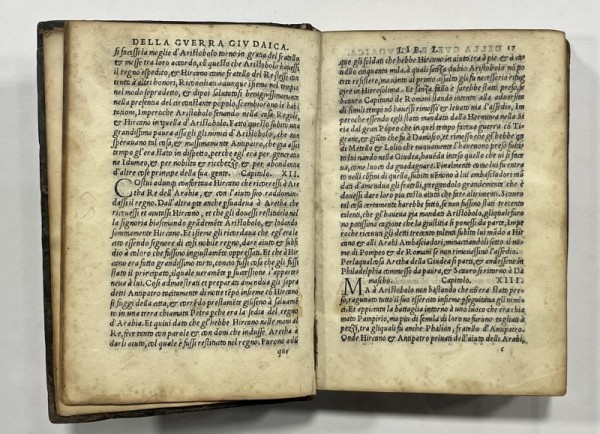 DELLA GVERRA GIVDAICA.
si facesse la moglie d'Aristobolo torno in gratia del fratello
e messe tra loro accordo, cō questo che Aristobolo hauessi
il regno espedito, & Hircano come fratello del Re fessi con
tento d'altri honori, Riconciliati adunque insieme nel tempio
nel modo sopradetto, & dipoi salutatisi benignissimamente
nella presentia del circunstante popolo, scambiorono le habi
tationi, Imperoche Aristobolo se n'ando nella casa Regale,
& Hircano in quella d'Aristobolo. Fatto questo subito una
grandissima paura assali gli nimici d'Aristobolo, che non
sperauano tal cosa, & massimamente Antipatro, che gia assai
tempo gl'era stato in dispetto, perche egl'era per generatio
ne Idumeo, & per nobilta & richezze, & per abondantia
d'altre cose principe della sua gente. Capitolo. XII.
Costui adunque confortaua Hircano che ricorressi à Are
tha Re dell'Arabia, & con l'aiuto suo raddoman
dassi il regno. Dall'altra parte anche persuadeua à Aretha che
riceuessi et aiutassi Hircano, & che gli douessi restituirlo nel
la signoria biasimando grādemēte Aristobolo, & lodando
sommamente Hircano. Et insieme gli ricordaua che egl'era le
cito essendo signore di cosi nobile regno, dare aiuto & subsi
dio à coloro che fussino ingiustamēte oppressati. Et che à Hir
cano era fatto grandissimo torto, contro cosa che gli fussi
stato tolto il principato, il quale ueramēte per successione s'apparte
neua à lui. Cosi ammaestrati et preparati amendua gli sopra
detti Antipatro tacitamente di notte tēpo insieme cō Hircano
si fuggi della citta, & correndo prestamēte giūseno à saluamē
to in una terra chiamata Petra che era la sedia del regno
d'Arabia. Et quiui dato che gl'hebbe Hircano nelle mani al
Re, fece tanto con parole & con doni che indusse Aretha à
darli aiuto, col quale è fussi restituito nel regno. Furono adū
que
LIB. I. 17
que gli soldati che hebbe Hircano in aiuto tra à pie, & à ca
uallo cinquanta mila. à quali sanza dubio Aristobolo nō po
tette resistere, ma uinto al primo assalto gli fu necessario rifug
gire in Hierosolima. Et sanza fallo è sarebbe stato preso, se
Scauro Capitano de Romani stando intento alla aduersita
di simili tempi nō hauessi rimossi & leuati uia l'assedio. Im
peroche essendo egli stato mandato dalla Hermenia nella So
ria dal gran Pōpeo che in quel tempo faceua guerra cō Ti
grane, & giūto che fu à Damasco, et rimossi che gli hebbe uia
di Metello & Lolio che nuouamente l'haueuono presa subi
to sul nando nella Giudea, hauēdo inteso quello che ui si fa
ceua, come luoco da guadagnare. Finalmente come lui fu en
trato nelli cōfini di quella, subito uēnono à lui ambasciadori mā
dati d'amendua gli fratelli, pregondolo grandemente che è
douessi dare loro piu tosto aiuto che fare altrimenti. Et sanza
dubio cosi certamente harebbe fatto, se non fussino stati trecento
talenti, che gl'haueua gia mandati Aristobolo, gli quali furo
no potissima cagione che la giustitia si ponessi da parte. Im
peroche riceuuti gli detti trecento talenti subito lui mādo à Hir
cano & alli Arabi Ambasciadori, minacciandoli sotto il no
me di Pompeo & de Romani se non rimouessino l'assedio.
Per la qual cosa Aretha della Giudea si parte, & andossene in
Philadelphia commosso da paura, & Scauro se ritorno à Da
masco. Capitolo XIII.
Ma à Aristobolo nō bastando che e si era stato pre
so, ragunato tutti il suo essercito insieme perseguitaua gli nimi
ci. Et appiccata la battaglia intorno à uno luoco che era chia
mato Pampirio, ma piu di semila di loro ne furono tagliati à
pezzi, tra gli quali fu anche Phalion, fratello d'Antipatro.
Onde Hircano & Antipatro priuati dell'aiuto delli Arabi,
c